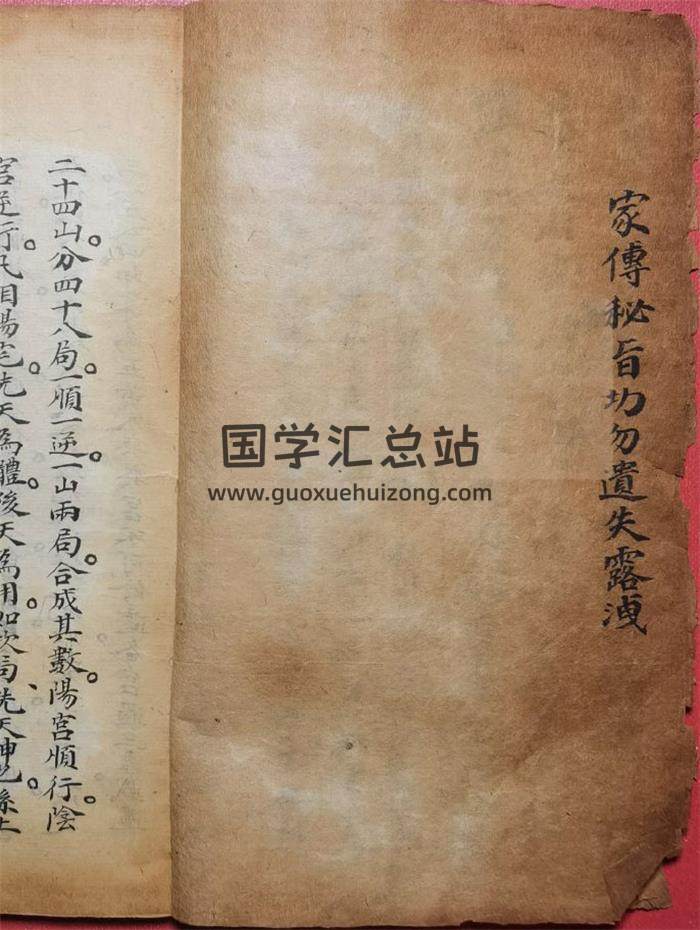 家傳秘旨切勿遺失露洩
国学汇总站
www.guoxuehuizong.com
二十四山分四十八局一順一逆一山兩局合成其數陽宮順行陰
宮逆行凡陽宅先天為體後天為用如坎局先天坤